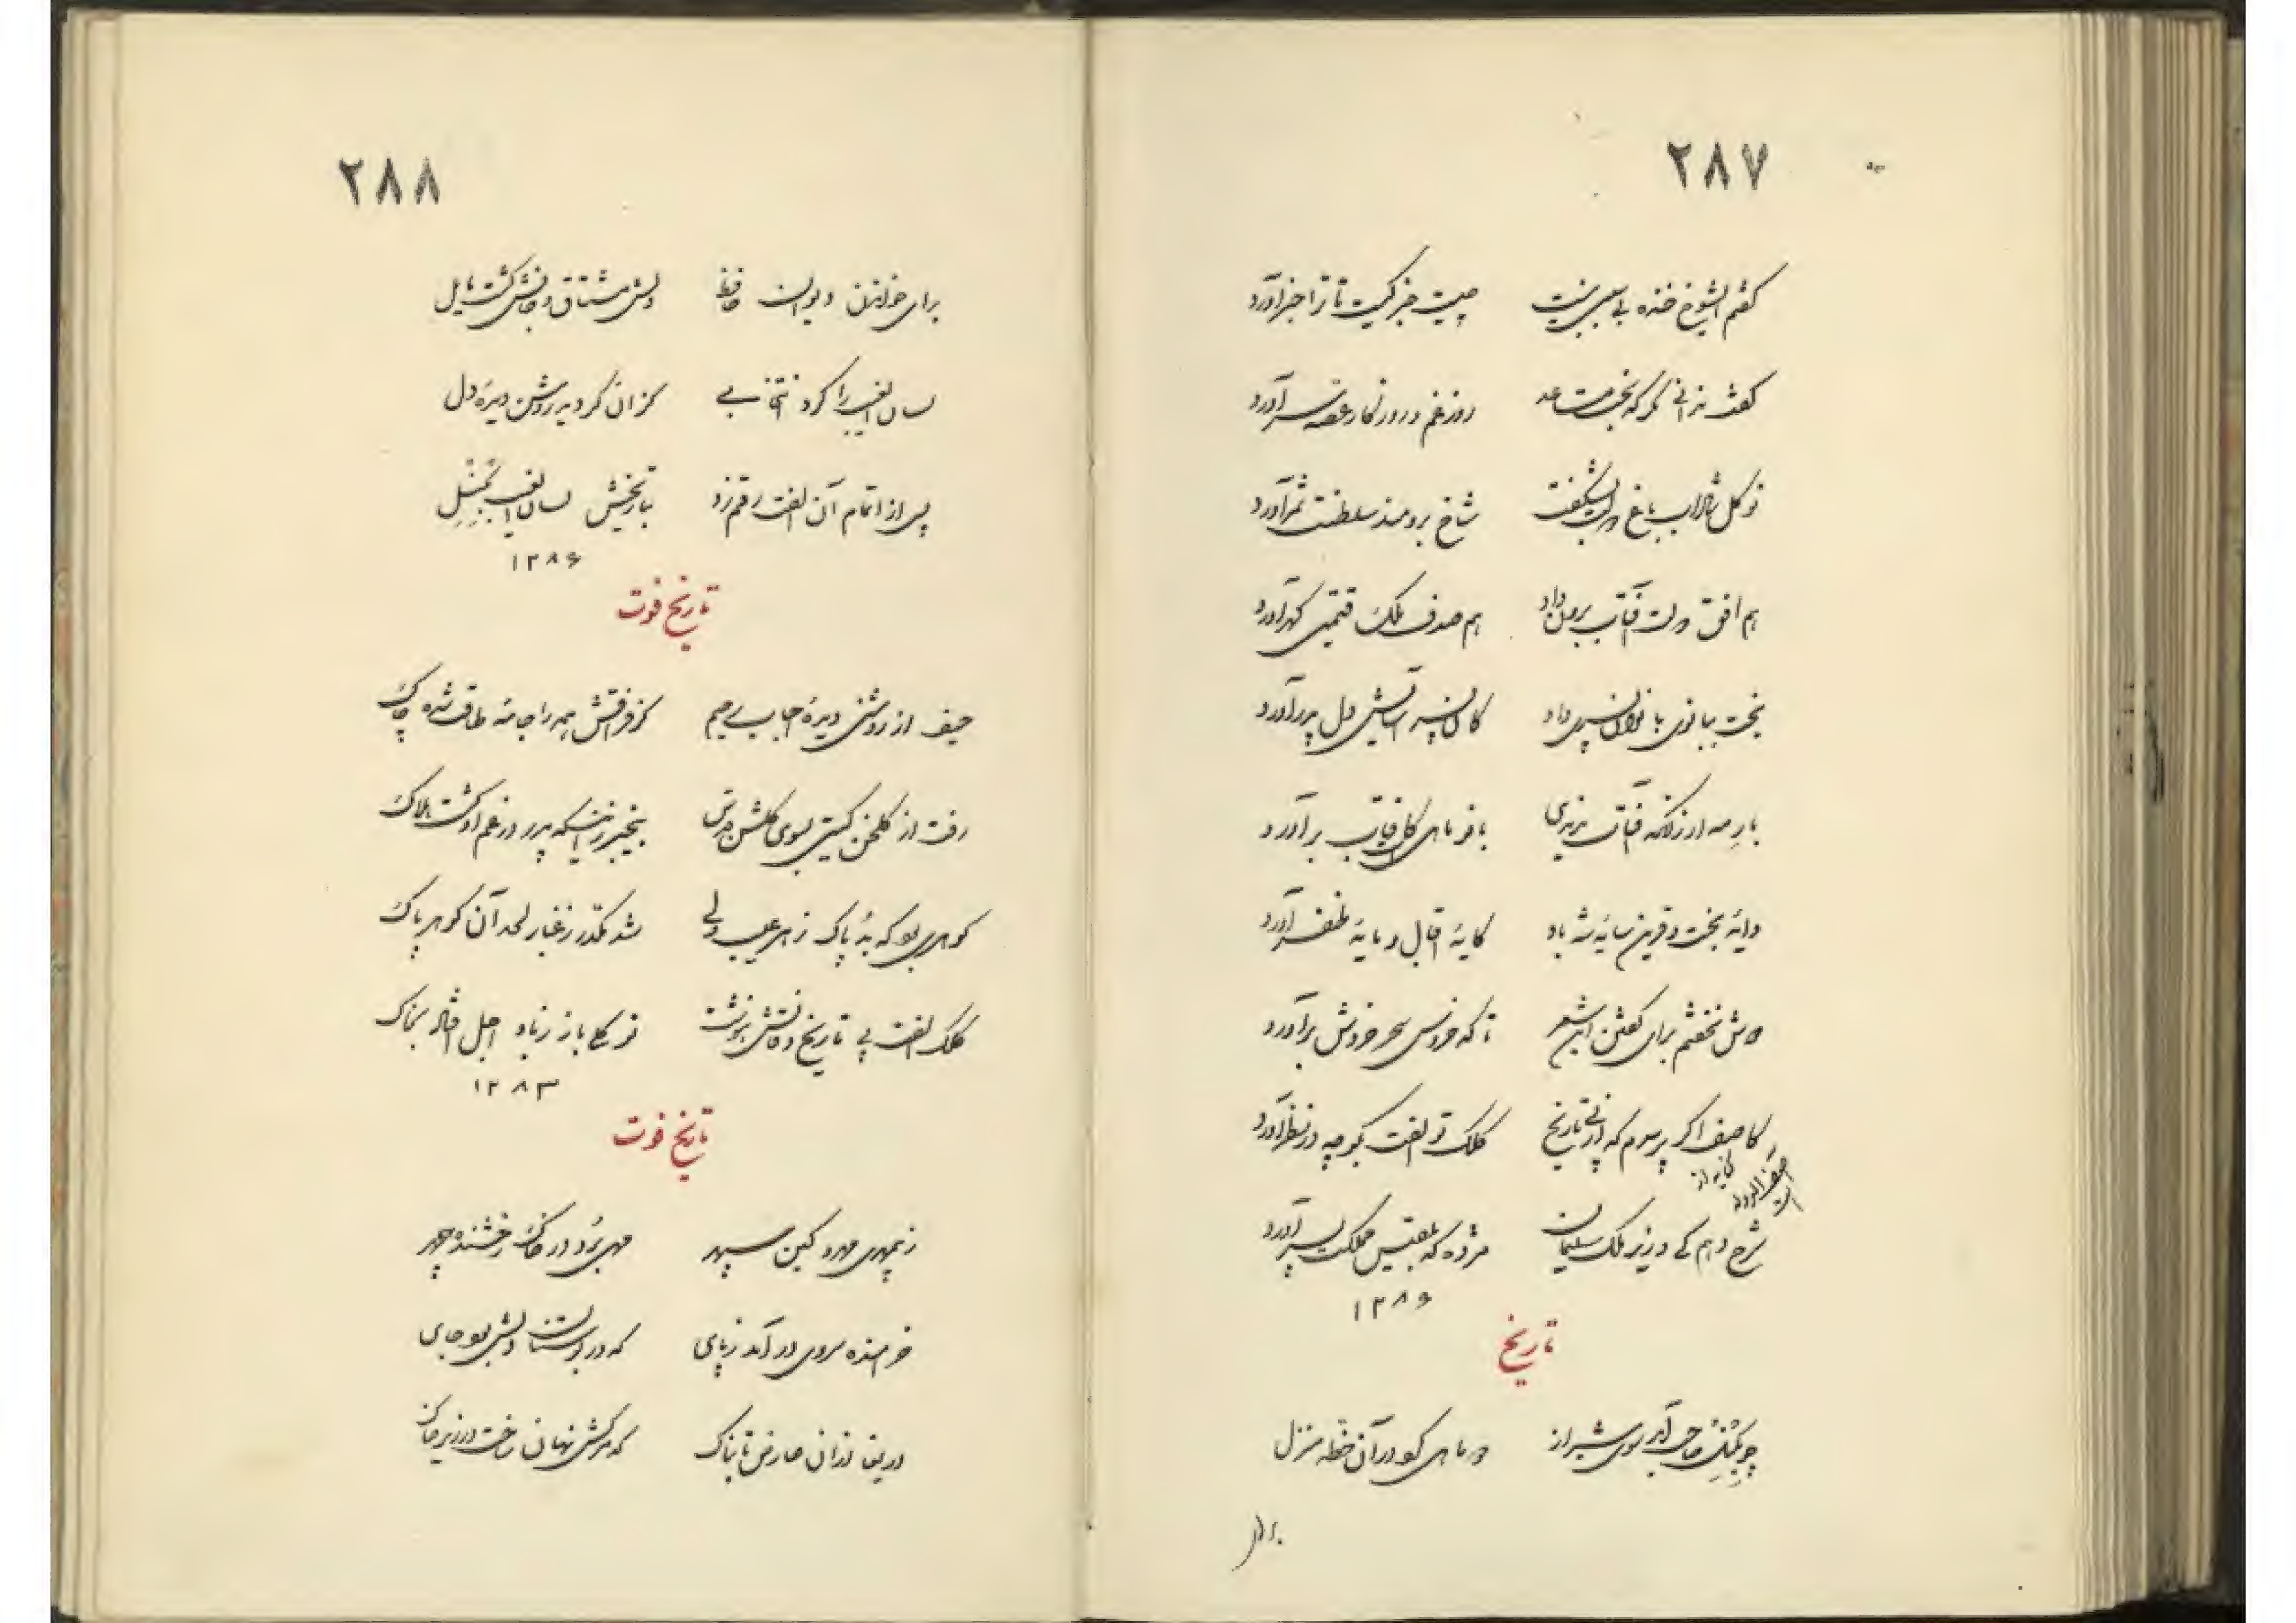 ۲۸۷
گفتم ای شوخ خنده بی سببی نیست چیست خبر کیست تا ترا خبر آورد
گفت ندانی مگر که بخت مساعد روز غم و روزگار غصه سر آورد
نوگل شاداب باغ دولت بشکفت شاخ برومند سلطنت ثمر آورد
هم افق دولت آفتاب برون داد هم صدف ملک قیمتی گهر آورد
بخت ببانوی بانوان پسری داد کان پسر آسایش دل پدر آورد
بار مه ار زانکه آفتاب ندیدی بانو ماهی کافتاب بر آورد
دایهٔ بخت و قرین سایهٔ شه باد کایهٔ اقبال و مایهٔ ظفر آورد
دوش نخفتم برای گفتن این شعر تا که خروس سحر خروش برآورد
کاصف اگر پرسدم که از پی تاریخ کلک تو الفت بگو چه در نظر آورد
آصف الدوله است
کنایه از
شرح دهم کی وزیر ملک سلیمان مژده که بلقیس مملکت پسر آورد
۱۲۸۶
تاریخ
چو بگنل صاحب آمد سوی شیراز دو ماهی کرد در آن خطه منزل
برای
۲۸۸
برای خواندن دیوان حافظ دلش مشتاق و جانش گشت مایل
لسان الغیب را کرد انتخابی کزان گردید روشن دیدهٔ دل
پس از اتمام آن الفت رقم زد بتاریخش لسان الغیب بگنل
۱۲۸۶
تاریخ فوت
حیف از روشنی دیدهٔ احباب رحیم کز فراقش همه را جامهٔ طاقت شده چاک
رفت از گلخن گیتی بسوی گلشن قدس بیخبر زینکه پدر در غم او گشت هلاک
گوهری بود که بد پاک ز هر عیب ولی شد مکدر ز غبار لحد آن گوهر پاک
کلک الفت پی تاریخ وفاتش بنوشت نوگلی باز ز باد اجل افتاد بخاک
۱۲۸۳
تاریخ فوت
ز بیمهری مهر و کین سپهر مهی برد در خاک رخشنده چهر
خرامنده سروی درآمد ز پای که در بوستان دلش بود جای
دریغا از آن عارض تابناک که مرگش نهان ساخت در زیر خاک